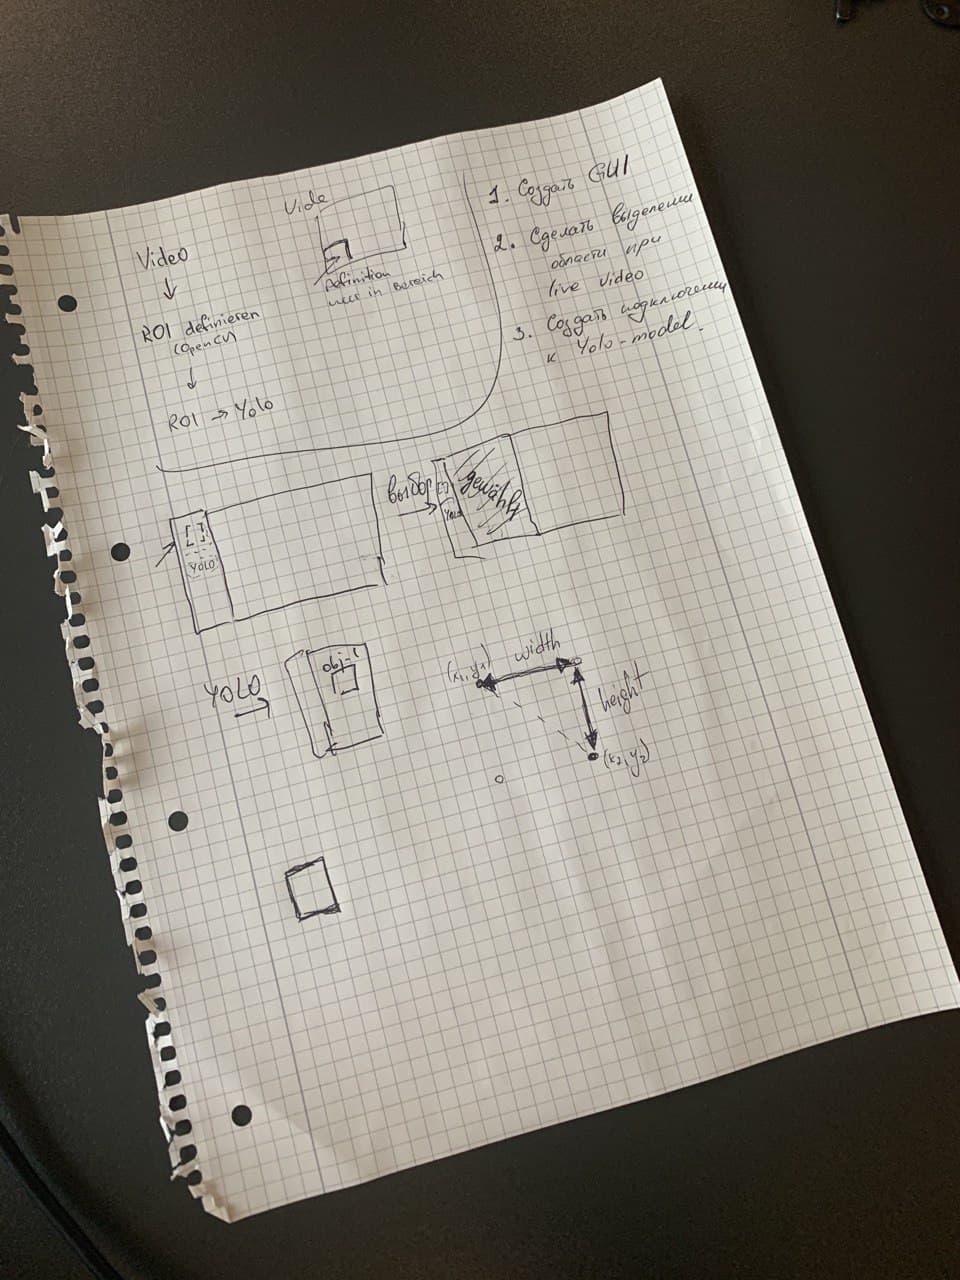 Video
ROI definieren
(OpenCV)
ROI → Yolo
Vide
Definition
in Bereich
1. Создать GUI
2. Сделать выделении
области при
live video
3. Создать подключении
к Yolo-model.
YOLO
выбор
YOLO
gewählt
YOLO
obj-1
(x₁, y₁)
width
height
(x₂, y₂)